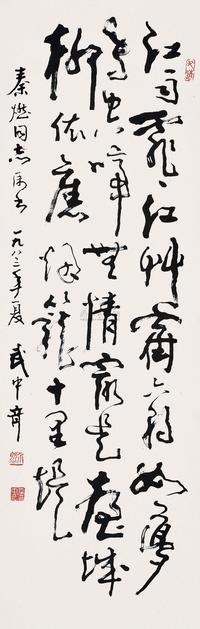 江雨霏霏江艸齊六朝如夢
鳥空啼無情最是臺城
柳依舊烟籠十里堤
秦燃同志属书 一九八三年夏 武中奇